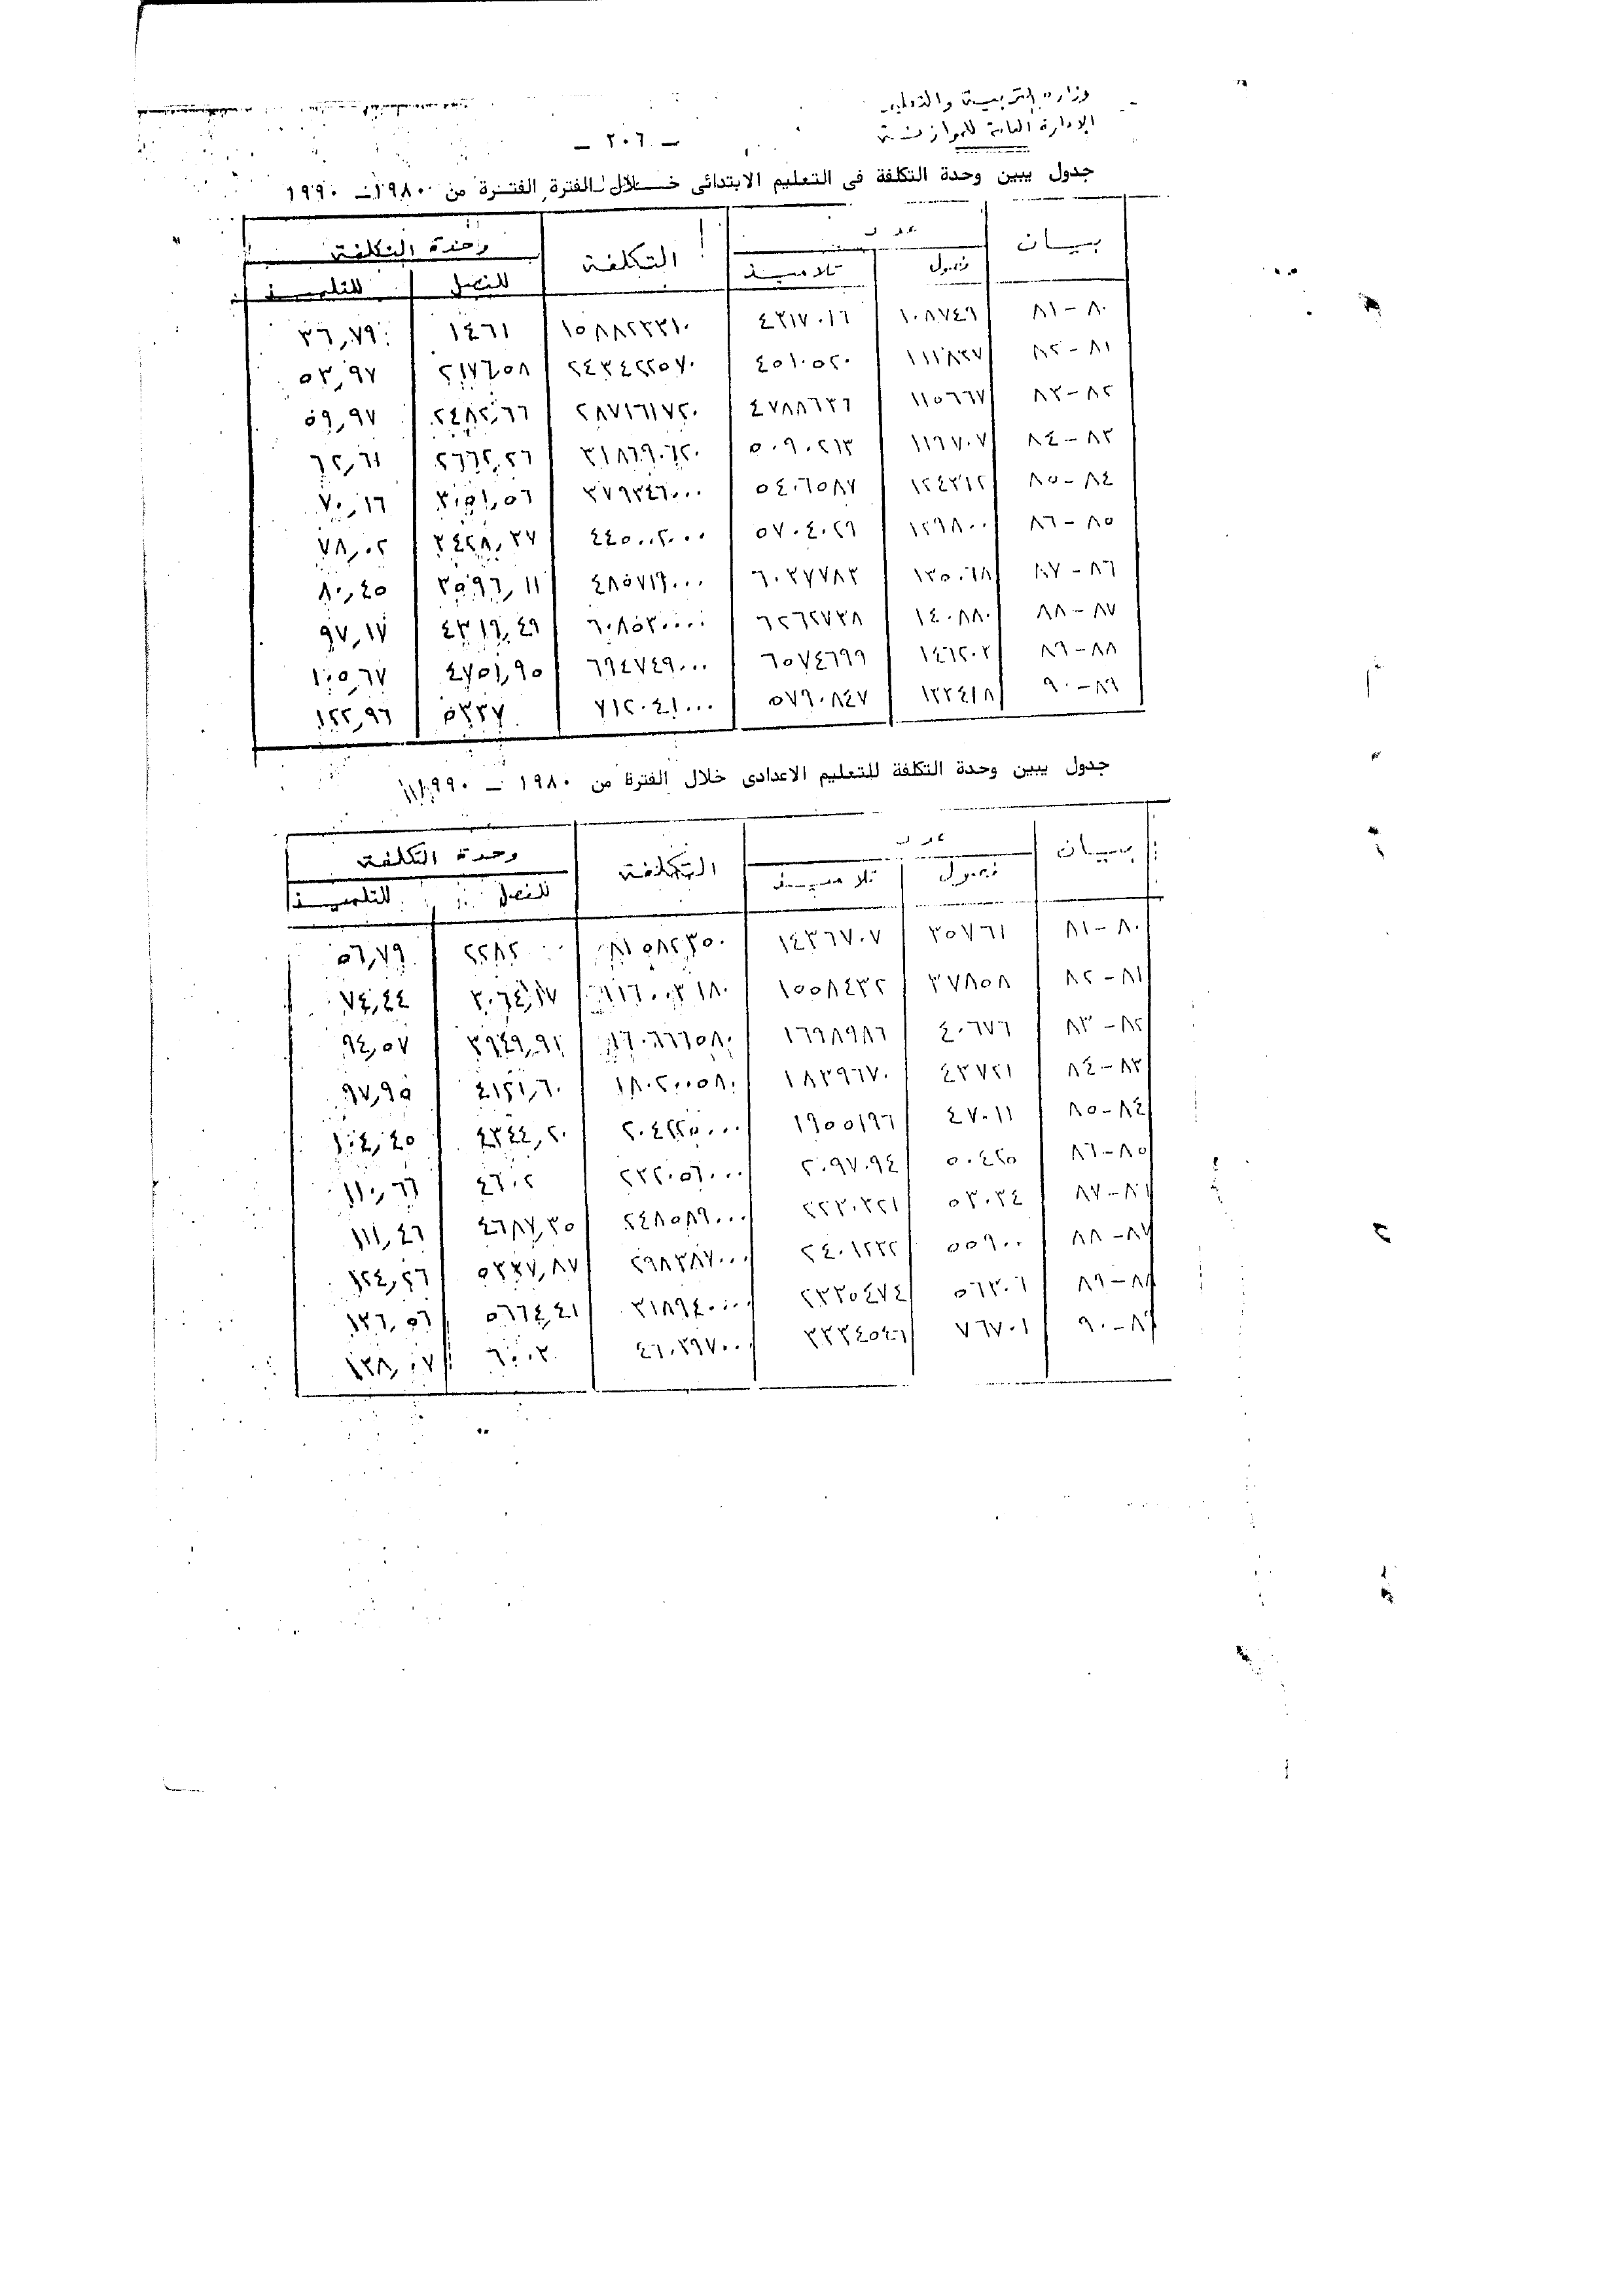 وزارة التربية والتعليم
الإدارة العامة للموازنة
ـ ٢٠٦ ـ
جدول يبين وحدة التكلفة فى التعليم الابتدائى خلال الفترة الفترة من ١٩٨٠ ـ ١٩٩٠
بيان عدد التكلفة وحدة التكلفة
فصول تلاميذ للفصل للتلميذ
٨٠ - ٨١ ١٠٨٧٤٦ ٤٣١٧٠١٦ ١٥٨٨٢٣٣١٠ ١٤٦١ ٣٦,٧٩
٨١ - ٨٢ ١١١٨٣٧ ٤٥١٠٥٢٠ ٢٤٣٤٢٢٥٧٠ ٢١٧٦٥٨ ٥٣,٩٧
٨٢ - ٨٣ ١١٥٦٦٧ ٤٧٨٨٦٣٦ ٢٨٧١٦١٧٢٠ ٢٤٨٢,٦٦ ٥٩,٩٧
٨٣ - ٨٤ ١١٩٧٠٧ ٥٠٩٠٢١٣ ٣١٨٦٩٠٦٢٠ ٢٦٦٢,٢٦ ٦٢,٦١
٨٤ - ٨٥ ١٢٤٣١٢ ٥٤٠٦٥٨٧ ٣٧٩٣٤٦٠٠٠ ٣٠٥١,٥٦ ٧٠,١٦
٨٥ - ٨٦ ١٢٩٨٠٠ ٥٧٠٤٠٢٩ ٤٤٥٠٠٢٠٠٠ ٣٤٢٨,٣٧ ٧٨,٠٢
٨٦ - ٨٧ ١٣٥٠٦٨ ٦٠٣٧٧٨٣ ٤٨٥٧١٩٠٠٠ ٣٥٩٦,١١ ٨٠,٤٥
٨٧ - ٨٨ ١٤٠٨٨٠ ٦٢٦٢٧٣٨ ٦٠٨٥٣٠٠٠٠ ٤٣١٩,٤٩ ٩٧,١٧
٨٨ - ٨٩ ١٤٦٢٠٢ ٦٥٧٤٦٩٩ ٦٩٤٧٤٩٠٠٠ ٤٧٥١,٩٠ ١٠٥,٦٧
٨٩ - ٩٠ ١٣٣٤١٨ ٥٧٩٠٨٤٧ ٧١٢٠٤١٠٠٠ ٥٣٣٧ ١٢٢,٩٦
جدول يبين وحدة التكلفة للتعليم الاعدادى خلال الفترة من ١٩٨٠ ـ ١٩٩٠
بيان عدد التكلفة وحدة التكلفة
فصول تلاميذ للفصل للتلميذ
٨٠ - ٨١ ٣٥٧٦١ ١٤٣٦٧٠٧ ٨١٥٨٢٣٥٠ ٢٢٨٢ ٥٦,٧٩
٨١ - ٨٢ ٣٧٨٥٨ ١٥٥٨٤٣٢ ٣٠٦٤,١٧ ٧٤,٤٤
٨٢ - ٨٣ ٤٠٦٧٦ ١٦٩٨٩٨٦ ١٦٠٦٦٦٥٨٠ ٣٩٤٩,٩٢ ٩٤,٥٧
٨٣ - ٨٤ ٤٣٧٢١ ١٨٣٩٦٧٠ ١٨٠٢٠٠٥٨٠ ٤١٢١,٦٠ ٩٧,٩٥
٨٤ - ٨٥ ٤٧٠١١ ١٩٥٥١٩٦ ٢٠٤٢٢٥٠٠٠ ٤٣٤٤,٢٠ ١٠٤,٤٥
٨٥ - ٨٦ ٥٠٤٢٥ ٢٠٩٧٠٩٤ ٢٣٢٠٥٦٠٠٠ ٤٦٠٢ ١١٠,٦٦
٨٦ - ٨٧ ٥٣٠٣٤ ٢٢٣٠٣٢١ ٢٤٨٥٨٩٠٠٠ ٤٦٨٧,٣٥ ١١١,٤٦
٨٧ - ٨٨ ٥٥٩٠٠ ٢٤٠١٢٣٢ ٢٩٨٣٨٧٠٠٠ ٥٣٣٧,٨٧ ١٢٤,٢٦
٨٨ - ٨٩ ٥٦٣٠٦ ٢٣٣٥٤٧٤ ٣١٨٩٤٠٠٠٠ ٥٦٦٤,٤١ ١٣٦,٥٦
٨٩ - ٩٠ ٧٦٧٠١ ٣٣٣٤٥٤٦ ٤٦٠٣٩٧٠٠٠ ٦٠٠٢ ١٣٨,٠٧